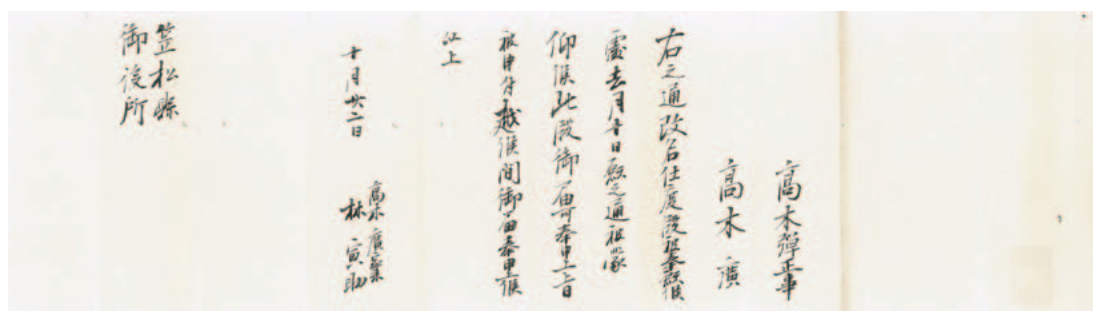 高木弾正事
高木廣
右之通改名仕度段相奉願候
處去月十日願之通被蒙
仰候此段御届可奉申上旨
被申付越候間御届奉申上候
以上
十月廿二日
高木廣家
林寅助
笠松縣
御役所